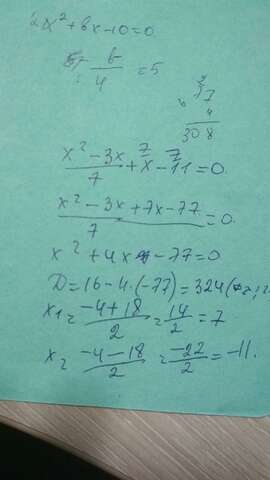 2x² + bx - 10 = 0.
- b/4 = 5
77
4
308
(x² - 3x)/7 + x - 11 = 0.
7 7
(x² - 3x + 7x - 77)/7 = 0.
x² + 4x - 77 = 0
D = 16 - 4 · (-77) = 324
x₁ = (-4 + 18)/2 = 14/2 = 7
x₂ = (-4 - 18)/2 = -22/2 = -11.